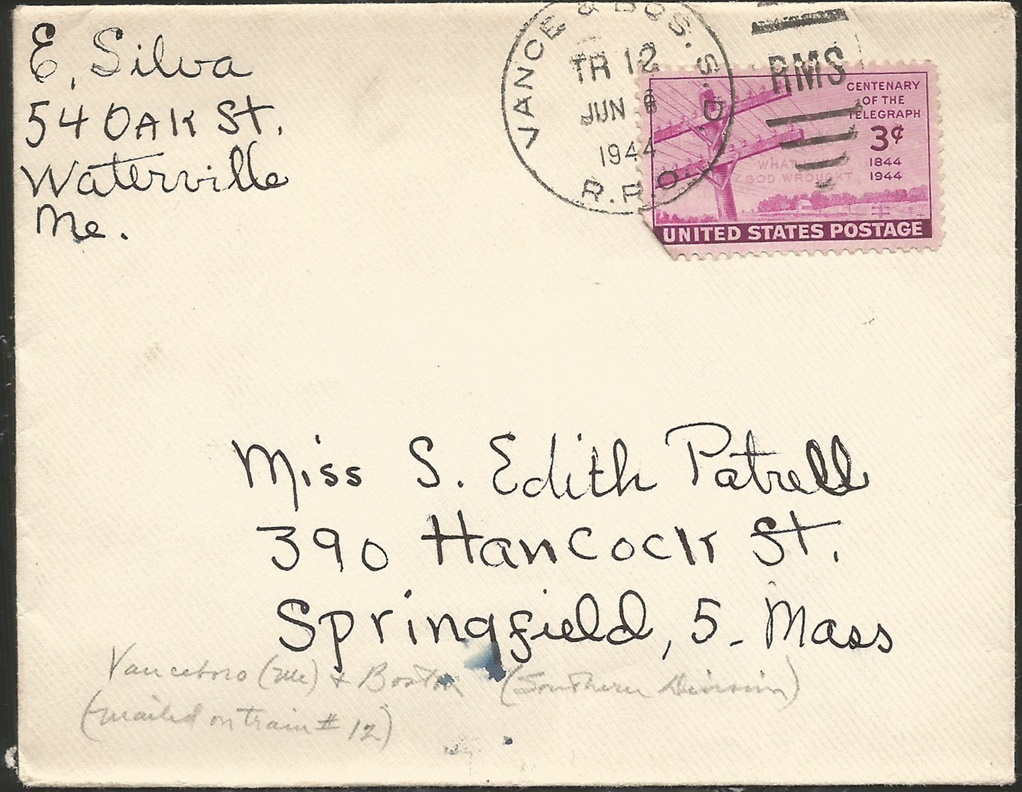 E. Silva
54 OAK St.
Waterville
Me.
VANCE & BOS. S. D
TR 12
JUN
1944
R.P.O.
RMS
CENTENARY
OF THE
TELEGRAPH
3¢
1844
1944
WHAT
GOD WROUGHT
UNITED STATES POSTAGE
Miss S. Edith Patrell
390 Hancock St.
Springfield, 5. Mass
Vanceboro (Me) & Boston (Southern Division)
(mailed on train # 12)